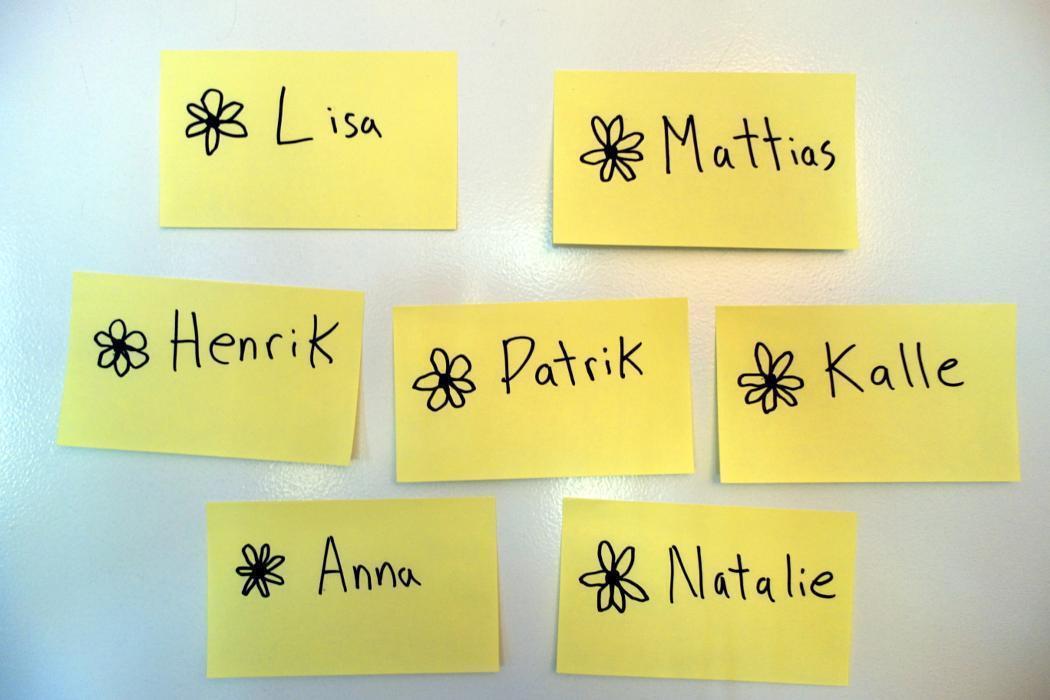 Lisa
Mattias
Henrik
Patrik
Kalle
Anna
Natalie